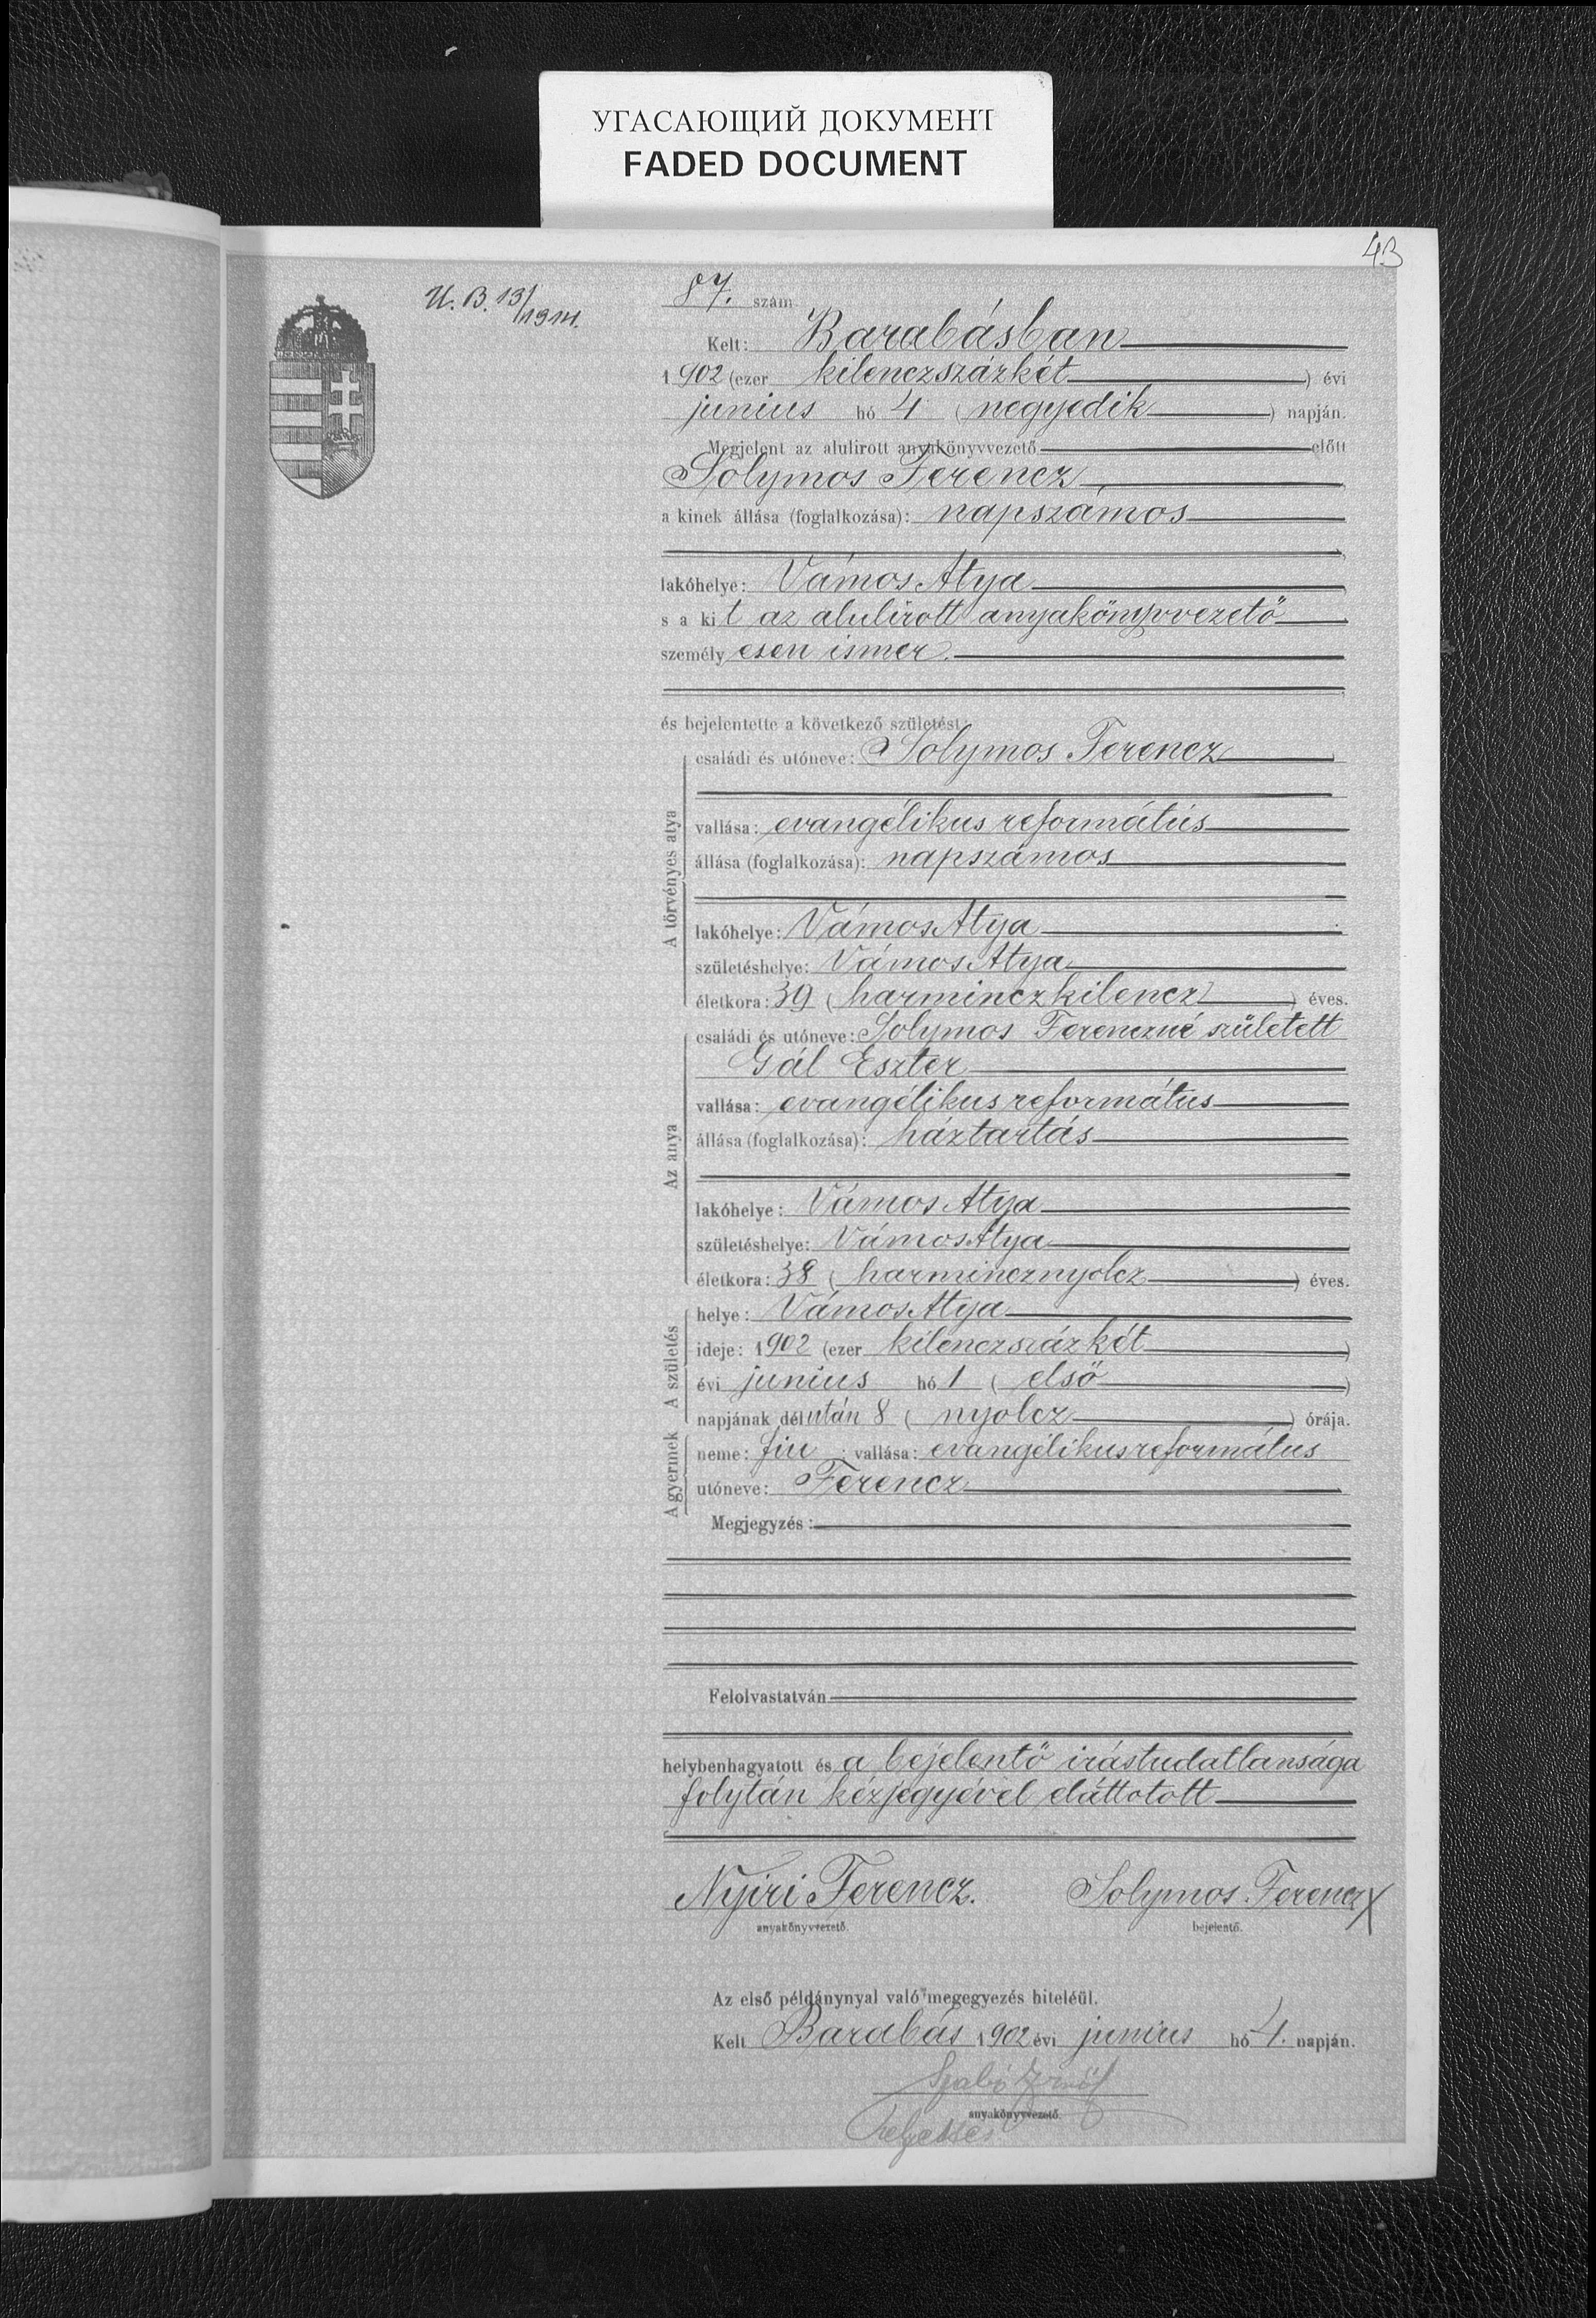 УГАСАЮЩИЙ ДОКУМЕНТ
FADED DOCUMENT
43
U. B. 13/1914.
87. szám
Kelt: Barabásban
1902 (ezer kilenczszázkét) évi
junius hó 4 (negyedik) napján.
Megjelent az alulirott anyakönyvvezető előtt
Solymos Ferencz,
a kinek állása (foglalkozása): napszámos
lakóhelye: Vámos Atya
s a kit az alulírott anyakönyvvezető
személyesen ismer.
és bejelentette a következő születést:
A törvényes atya
családi és utóneve: Solymos Ferencz
vallása: evangélikus református
állása (foglalkozása): napszámos
lakóhelye: Vámos Atya
születéshelye: Vámos Atya
életkora: 39 (harminczkilencz) éves.
Az anya
családi és utóneve: Solymos Ferenczné született
Gál Eszter
vallása: evangélikus református
állása (foglalkozása): háztartás
lakóhelye: Vámos Atya
születéshelye: Vámos Atya
életkora: 38 (harmincznyolcz) éves.
A születés
helye: Vámos Atya
ideje: 1902 (ezer kilenczszázkét)
évi junius hó 1 (első)
napjának délután 8 (nyolcz) órája.
A gyermek
neme: fiu; vallása: evangélikus református
utóneve: Ferencz
Megjegyzés:
Felolvastatván
helybenhagyatott és a bejelentő irástudatlansága
folytán kézjegyével eláttotott
Nyiri Ferencz. Solymos Ferencz X
anyakönyvvezető. bejelentő.
Az első példánynyal való megegyezés hiteléül.
Kelt Barabás 1902 évi junius hó 4. napján.
Szabó
anyakönyvvezető
helyettes